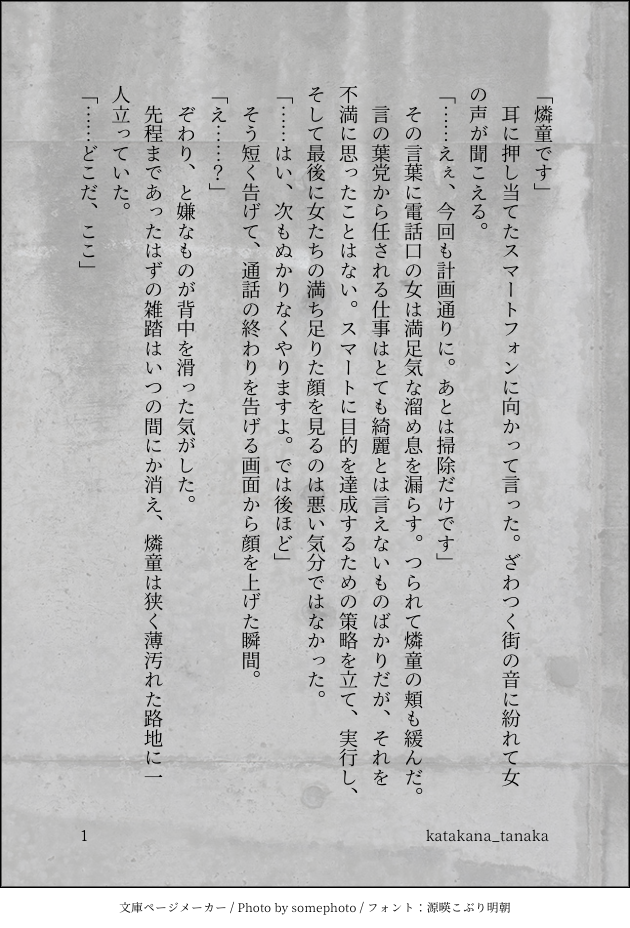 「燐童です」
　耳に押し当てたスマートフォンに向かって言った。ざわつく街の音に紛れて女
の声が聞こえる。
「……えぇ、今回も計画通りに。あとは掃除だけです」
　その言葉に電話口の女は満足気な溜め息を漏らす。つられて燐童の頬も緩んだ。
　言の葉党から任される仕事はとても綺麗とは言えないものばかりだが、それを
不満に思ったことはない。スマートに目的を達成するための策略を立て、実行し、
そして最後に女たちの満ち足りた顔を見るのは悪い気分ではなかった。
「……はい、次もぬかりなくやりますよ。では後ほど」
　そう短く告げて、通話の終わりを告げる画面から顔を上げた瞬間。
「え……？」
　ぞわり、と嫌なものが背中を滑った気がした。
　先程まであったはずの雑踏はいつの間にか消え、燐童は狭く薄汚れた路地に一
人立っていた。
「……どこだ、ここ」
1
katakana_tanaka
文庫ページメーカー / Photo by somephoto / フォント：源暎こぶり明朝